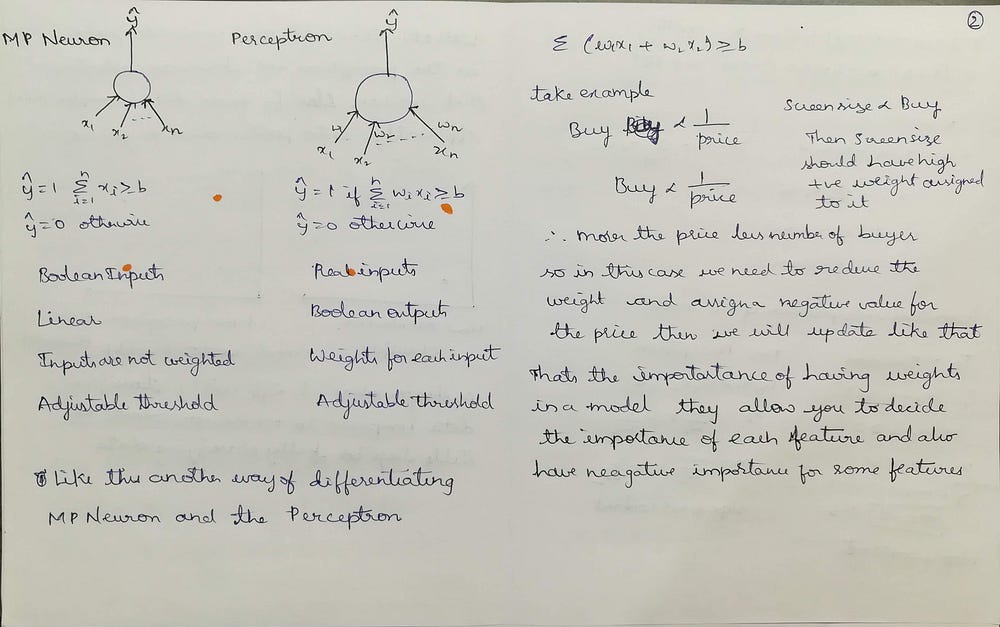 ②
MP Neuron
ŷ
x₁ x₂ --- xₙ
Perceptron
ŷ
w₁ w₂ ---- wₙ
x₁ x₂ xₙ
ŷ = 1 Σⁿᵢ₌₁ xᵢ ≥ b
ŷ = 0 otherwise
Boolean Inputs
Linear
Inputs are not weighted
Adjustable threshold
ŷ = 1 if Σⁿᵢ₌₁ wᵢ xᵢ ≥ b
ŷ = 0 otherwise
Real inputs
Boolean outputs
Weights for each input
Adjustable threshold
Like this another way of differentiating
MP Neuron and the Perceptron
Σ (w₁x₁ + w₂x₂) ≥ b
take example
Buy ∝ 1/price
Buy ∝ 1/price
Screen size ∝ Buy
Then Screen size
should have high
+ve weight assigned
to it
∴ morer the price less number of buyer
so in this case we need to reduve the
weight and assign a negative value for
the price then we will update like that
Thats the importartance of having weights
in a model they allow you to decide
the importance of each feature and also
have neagative importance for some features